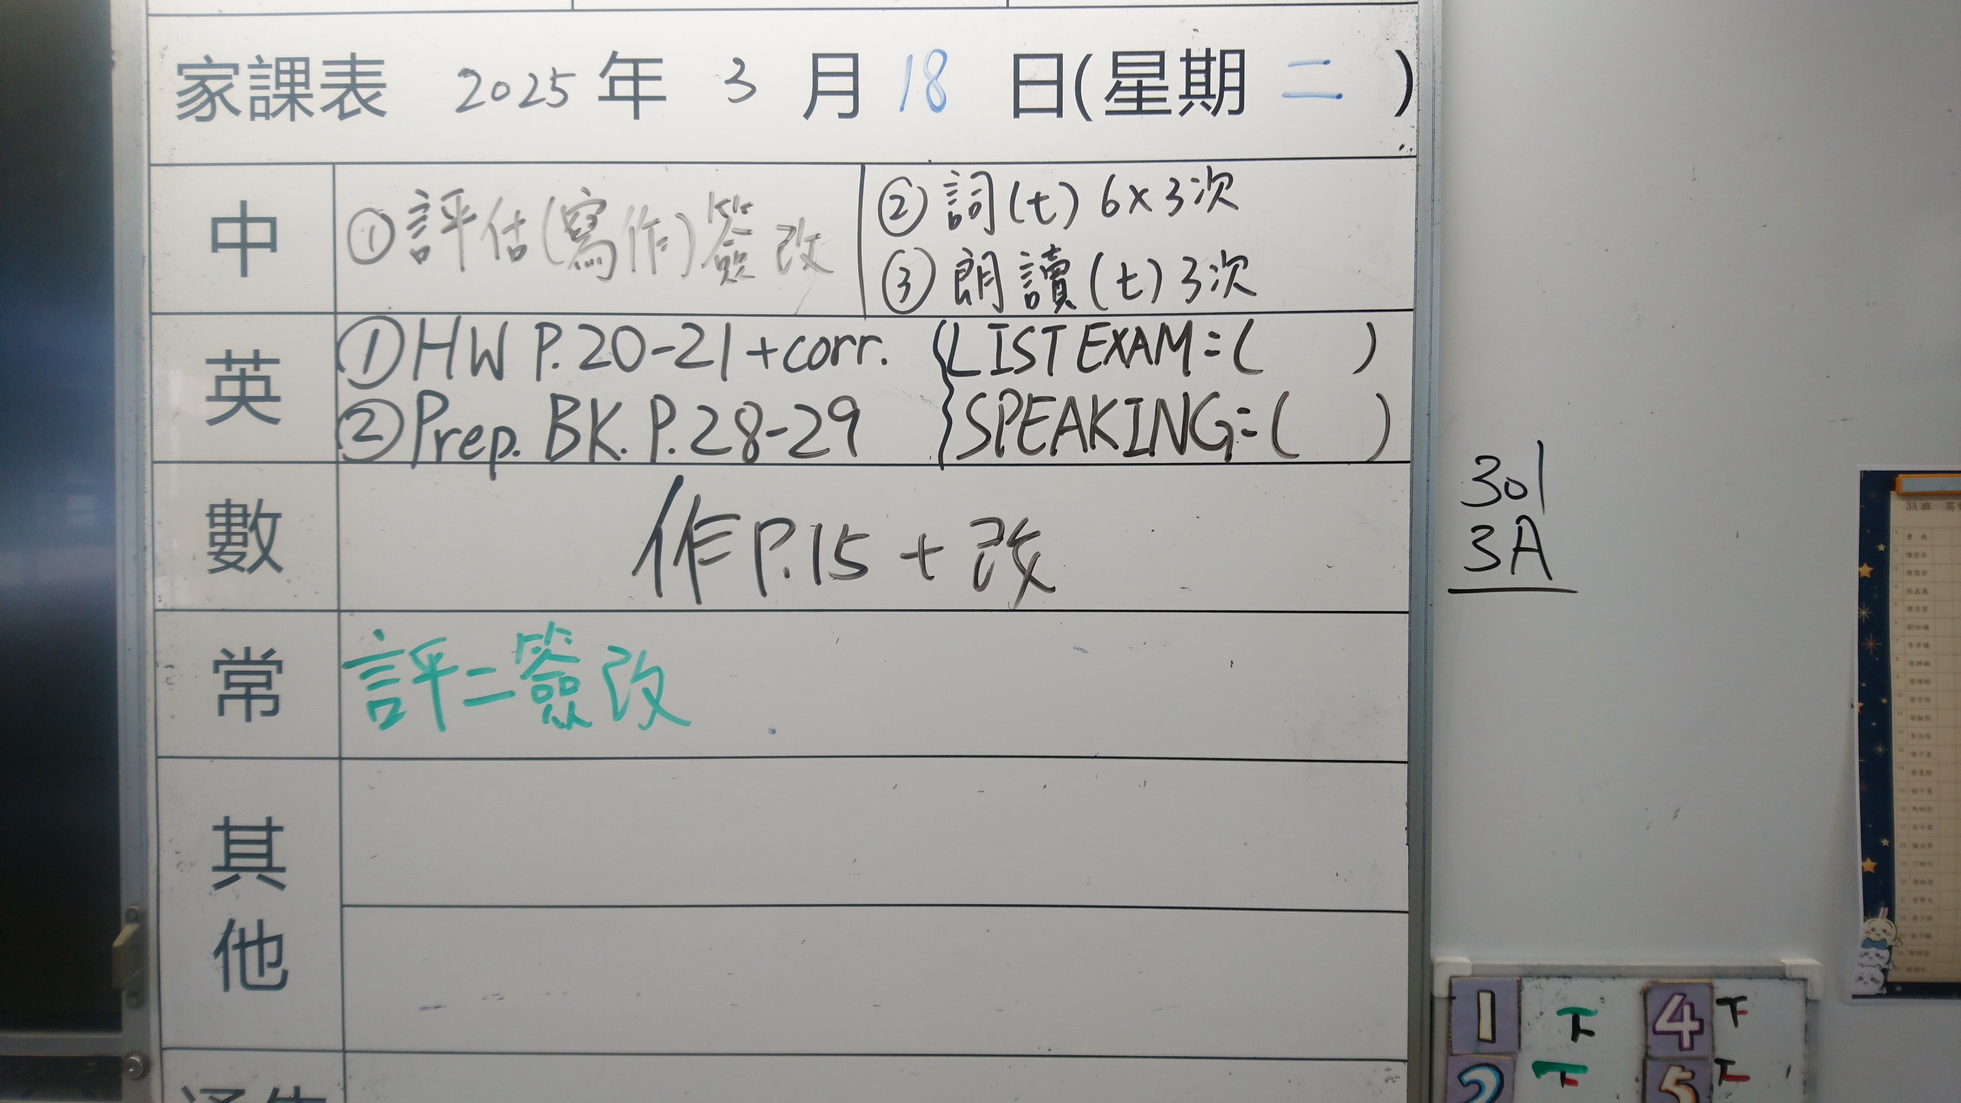 家課表 2025年 3月 18日(星期二)
中
①評估(寫作)簽改
②詞(七) 6×3次
③朗讀(七) 3次
英
①HW P.20-21+corr.
②Prep. BK. P.28-29
LIST EXAM=( )
SPEAKING=( )
數
作P.15 + 改
常
評二簽改
其他
301
3A
1 下 4 下
2 下 5 下